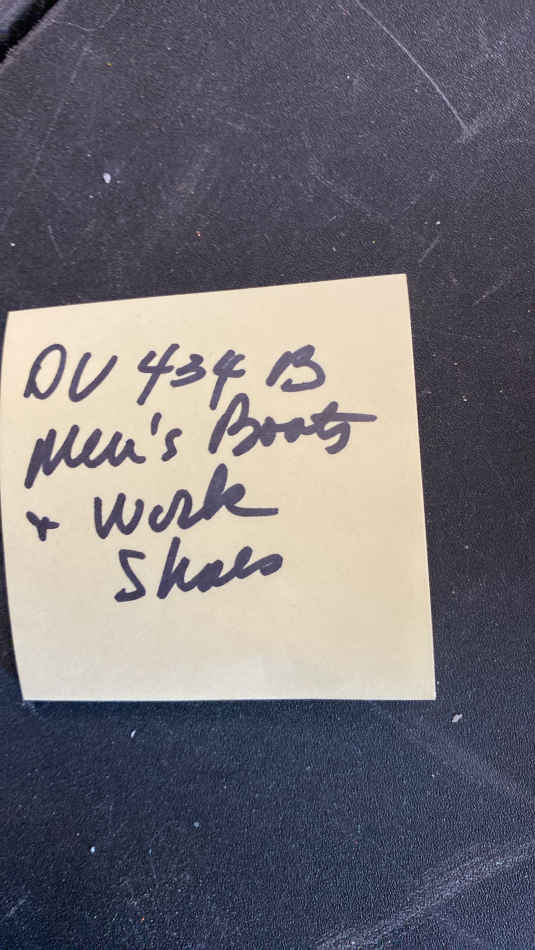 DV 434 B
Men's Boots
+ Work
Shoes